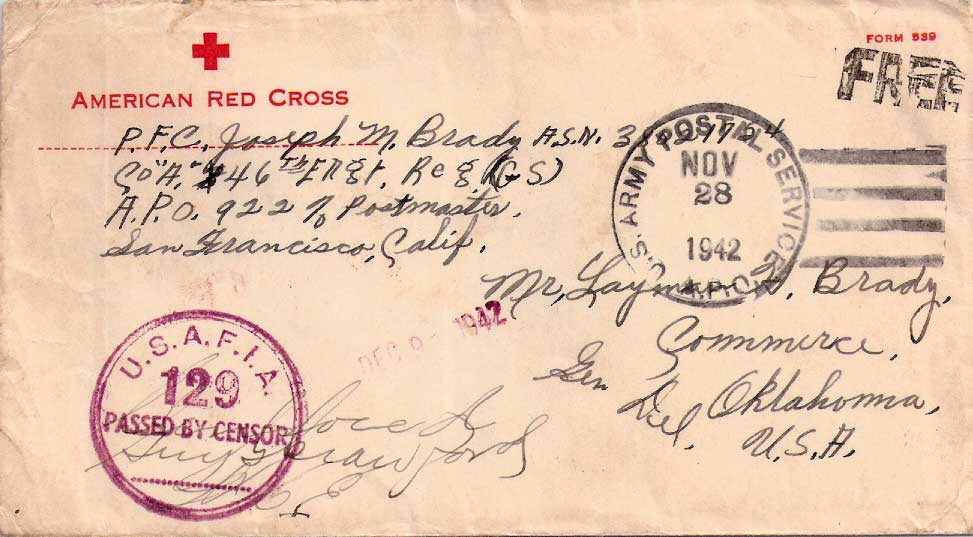 FORM 539
FREE
AMERICAN RED CROSS
P.F.C. Joseph M. Brady A.S.N.
Co "A" 46th Engr. Reg (GS)
A.P.O. 922 % Postmaster,
San Francisco, Calif.
U.S. ARMY POSTAL SERVICE
NOV
28
1942
A.P.O.
Mr, Brady,
Commerce,
Gen Del, Oklahoma,
U.S.A.
DEC 9 1942
U.S.A.F.I.A.
129
PASSED BY CENSOR
Guy Crawford